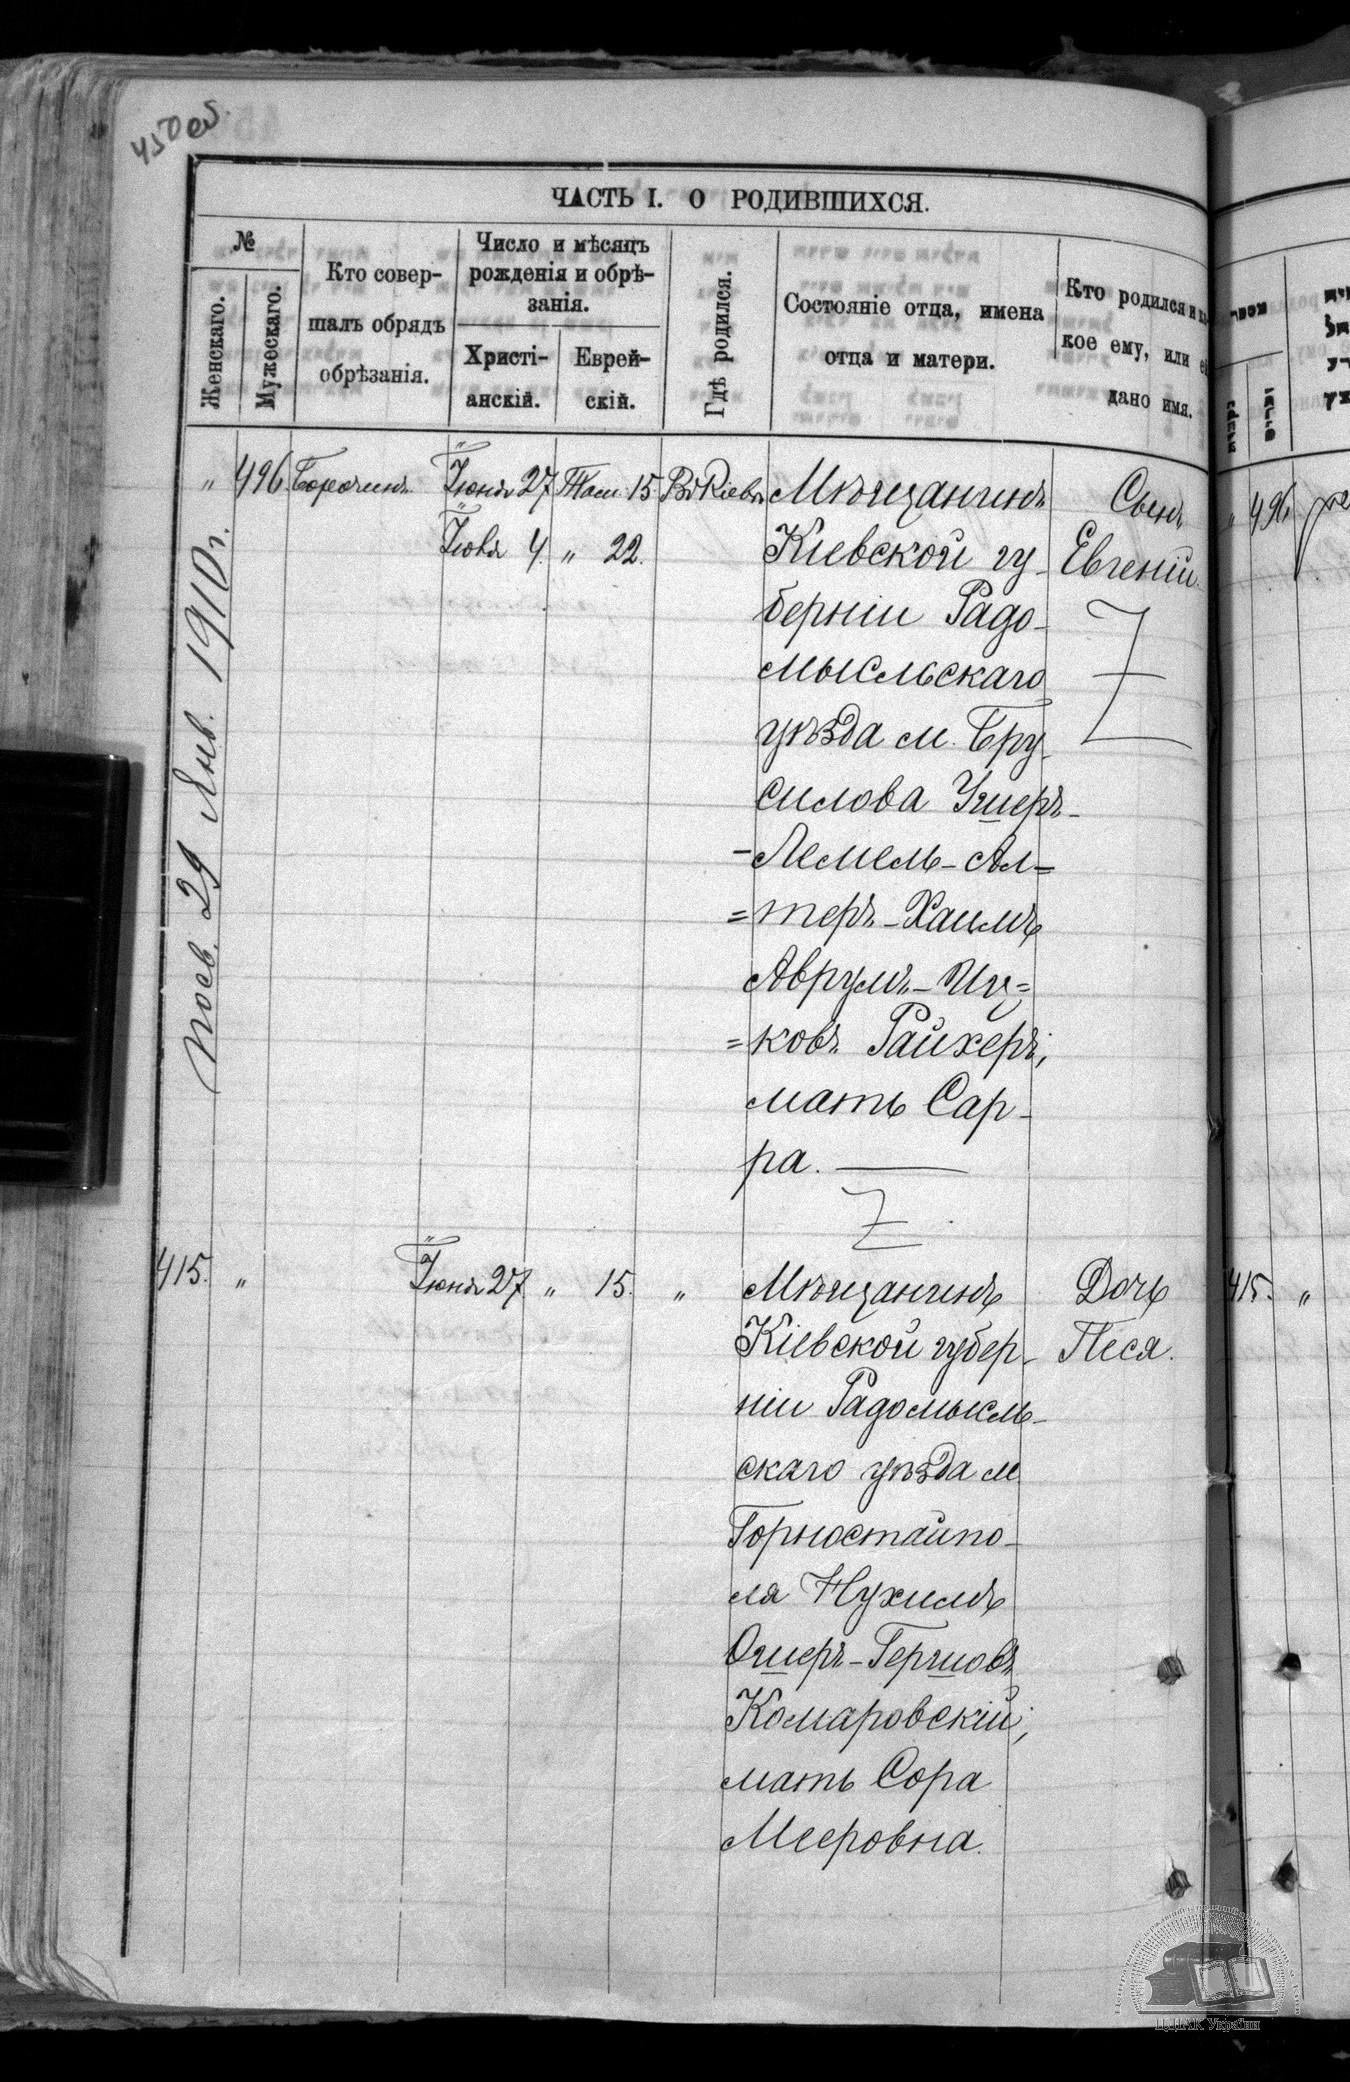 450 об.
ЧАСТЬ I. О РОДИВШИХСЯ.
№
Женскаго.
Мужескаго.
Кто совер-
шалъ обрядъ
обрѣзанія.
Число и мѣсяцъ
рожденія и обрѣ-
занія.
Христі-
анскій.
Еврей-
скій.
Гдѣ родился.
Состояніе отца, имена
отца и матери.
Кто родился и ка-
кое ему, или ей
дано имя.
" 496. Іюня 27 Там. 15 Въ Кіевѣ
Іюля 4. " 22.
Мѣщанинъ
Кіевской гу-
берніи Радо-
мысльскаго
уѣзда м. Бру-
силова Ушеръ-
-Лемель-Ал=
=теръ-Хаимъ
Аврумъ-Иц=
=ковъ Райхеръ;
мать Сар-
ра.
Сынъ
Евгеній.
Посв. 29 Янв. 1910 г.
415. " Іюня 27 " 15. "
Мѣщанинъ
Кіевской губер-
ніи Радомысль-
скаго уѣзда м.
Горностайпо-
ля Нухимъ
Ошеръ-Гершовъ
Комаровскій;
мать Сора
Мееровна.
Дочь
Песя.
" 496
415. "
ЦДІАК України